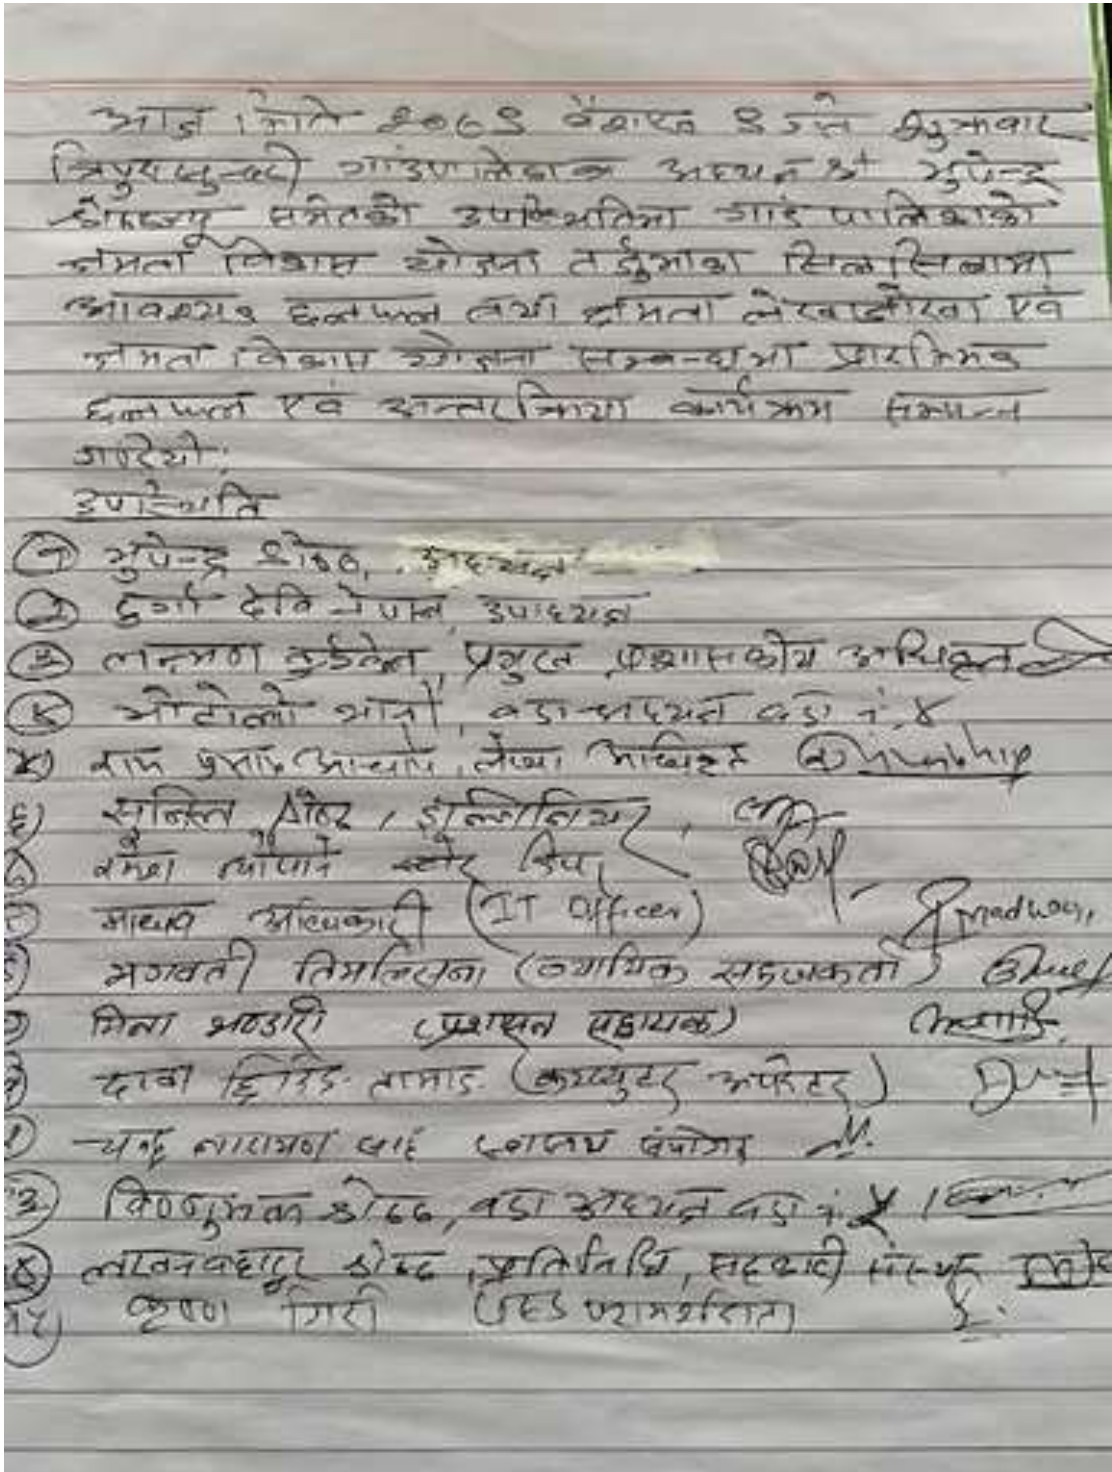 आज मिति २०७९ वैशाख ९ गते शुक्रवार
त्रिपुरासुन्दरी गाउँपालिकाका अध्यक्ष श्री भुपेन्द्र
समेतको उपस्थितिमा गाउँ पालिकाको
क्षमता विकास योजना तर्जुमाका सिलसिलामा
आवश्यक छलफल तथा क्षमता लेखाजोखा एवं
क्षमता विकास योजना सम्बन्धमा प्रारम्भिक
छलफल एवं अन्तरक्रिया कार्यक्रम सम्पन्न
गरियो।
उपस्थिति
१ भुपेन्द्र श्रेष्ठ, अध्यक्ष
२ दुर्गा देवि नेपाल, उपाध्यक्ष
३ लक्ष्मण कुईकेल, प्रमुख प्रशासकीय अधिकृत
४ वडा अध्यक्ष वडा नं. ४
५) राम प्रसाद आचार्य, लेखा अधिकृत
६) श्रेष्ठ, इन्जिनियर,
स्टोर किपर
माधव अधिकारी (IT Officer) Madhav
भगवती तिमल्सिना (न्यायिक सहजकर्ता)
मिना भण्डारी (प्रशासन सहायक)
दावा छिरिङ तामाङ (कम्प्युटर अपरेटर)
चन्द्र नारायण साह स्वास्थ्य संयोजक
१३) विष्णुभक्त श्रेष्ठ, वडा अध्यक्ष वडा नं.
१४ श्रेष्ठ, प्रतिनिधि, सहकारी संस्था
१५) कृष्ण गिरी परामर्शदाता